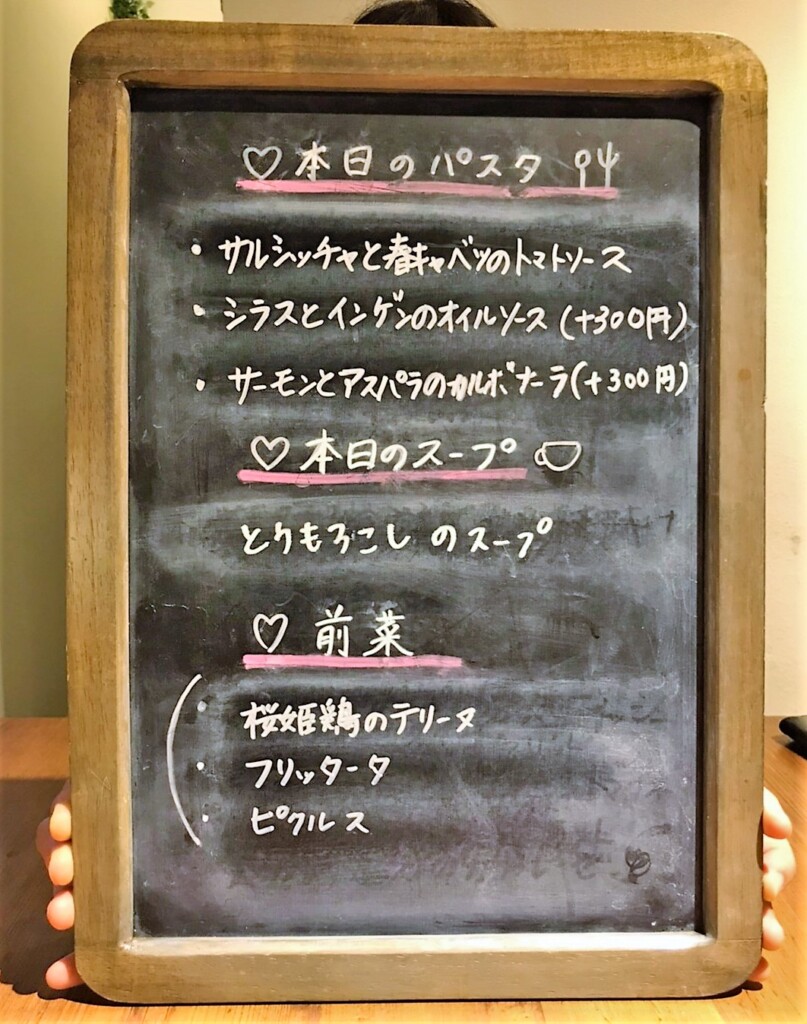 ♡本日のパスタ
・サルシッチャと春キャベツのトマトソース
・シラスとインゲンのオイルソース(+300円)
・サーモンとアスパラのカルボナーラ(+300円)
♡本日のスープ
とうもろこしのスープ
♡前菜
・桜姫鶏のテリーヌ
・フリッタータ
・ピクルス